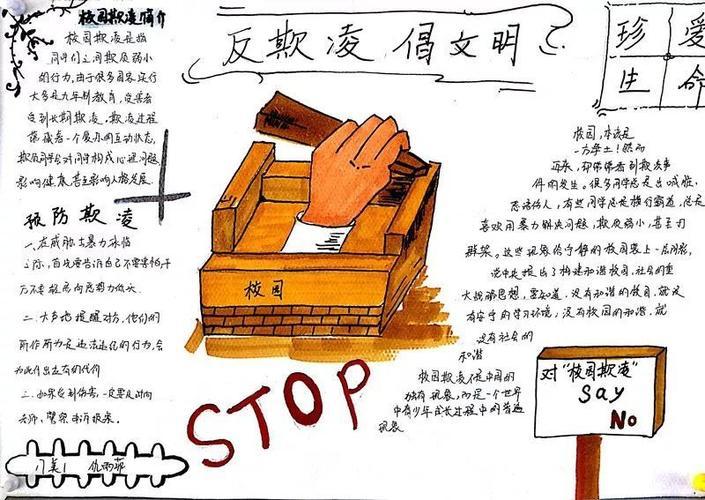 校园欺凌简介
校园欺凌是指
同学们之间欺负弱小
的行为,由于很多国家实行
大多是九年制教育,受害者
会受到长期欺凌。欺凌过程
蕴藏着一个复杂的互动状态,
欺凌同学会对同学构成心理问题,
影响健康,甚至影响人格发展。
预防欺凌
一、在威胁与暴力来临
之际,首先要告诉自己不要害怕,千
万不要轻易向恶势力低头
二、大声地提醒对方,他们的
所作所为是违法违纪的行为,会
为此付出应有的代价
三、如果受到伤害,一定要及时向
老师、警察申诉报案。
反欺凌 倡文明
珍爱
生命
校园,本该是
一方净土!然而
近来,却频频看到欺凌事
件的发生。很多同学总是出口成脏,
恶语伤人,有些同学总是横行霸道,总是
喜欢用暴力解决问题,欺负弱小,甚至打
群架。这些现象给宁静的校园蒙上一层阴影,
党中央提出了构建和谐校园、社会的重
大战略思想,要知道,没有和谐的校园,就没
有安宁的学习环境,没有校园的和谐,就
没有社会的
和谐
校园欺凌不是中国的
独有现象,而是一个世界
中青少年成长过程中的普遍
现象
校园
STOP
对“校园欺凌”
Say
No